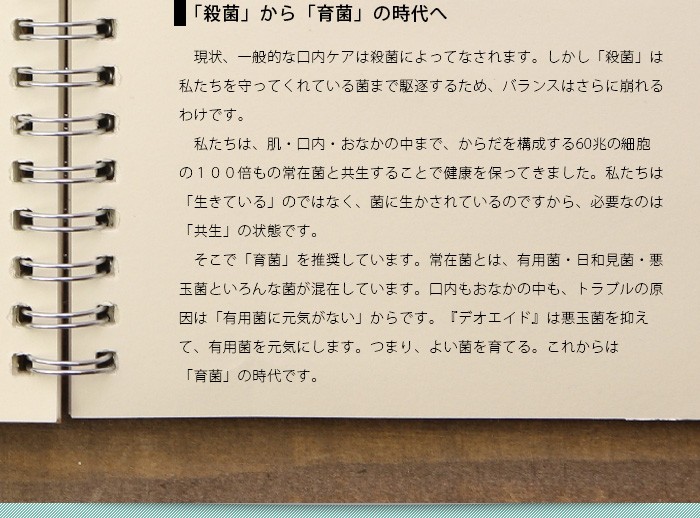 「殺菌」から「育菌」の時代へ
現状、一般的な口内ケアは殺菌によってなされます。しかし「殺菌」は
私たちを守ってくれている菌まで駆逐するため、バランスはさらに崩れる
わけです。
私たちは、肌・口内・おなかの中まで、からだを構成する60兆の細胞
の１００倍もの常在菌と共生することで健康を保ってきました。私たちは
「生きている」のではなく、菌に生かされているのですから、必要なのは
「共生」の状態です。
そこで「育菌」を推奨しています。常在菌とは、有用菌・日和見菌・悪
玉菌といろんな菌が混在しています。口内もおなかの中も、トラブルの原
因は「有用菌に元気がない」からです。『デオエイド』は悪玉菌を抑え
て、有用菌を元気にします。つまり、よい菌を育てる。これからは
「育菌」の時代です。